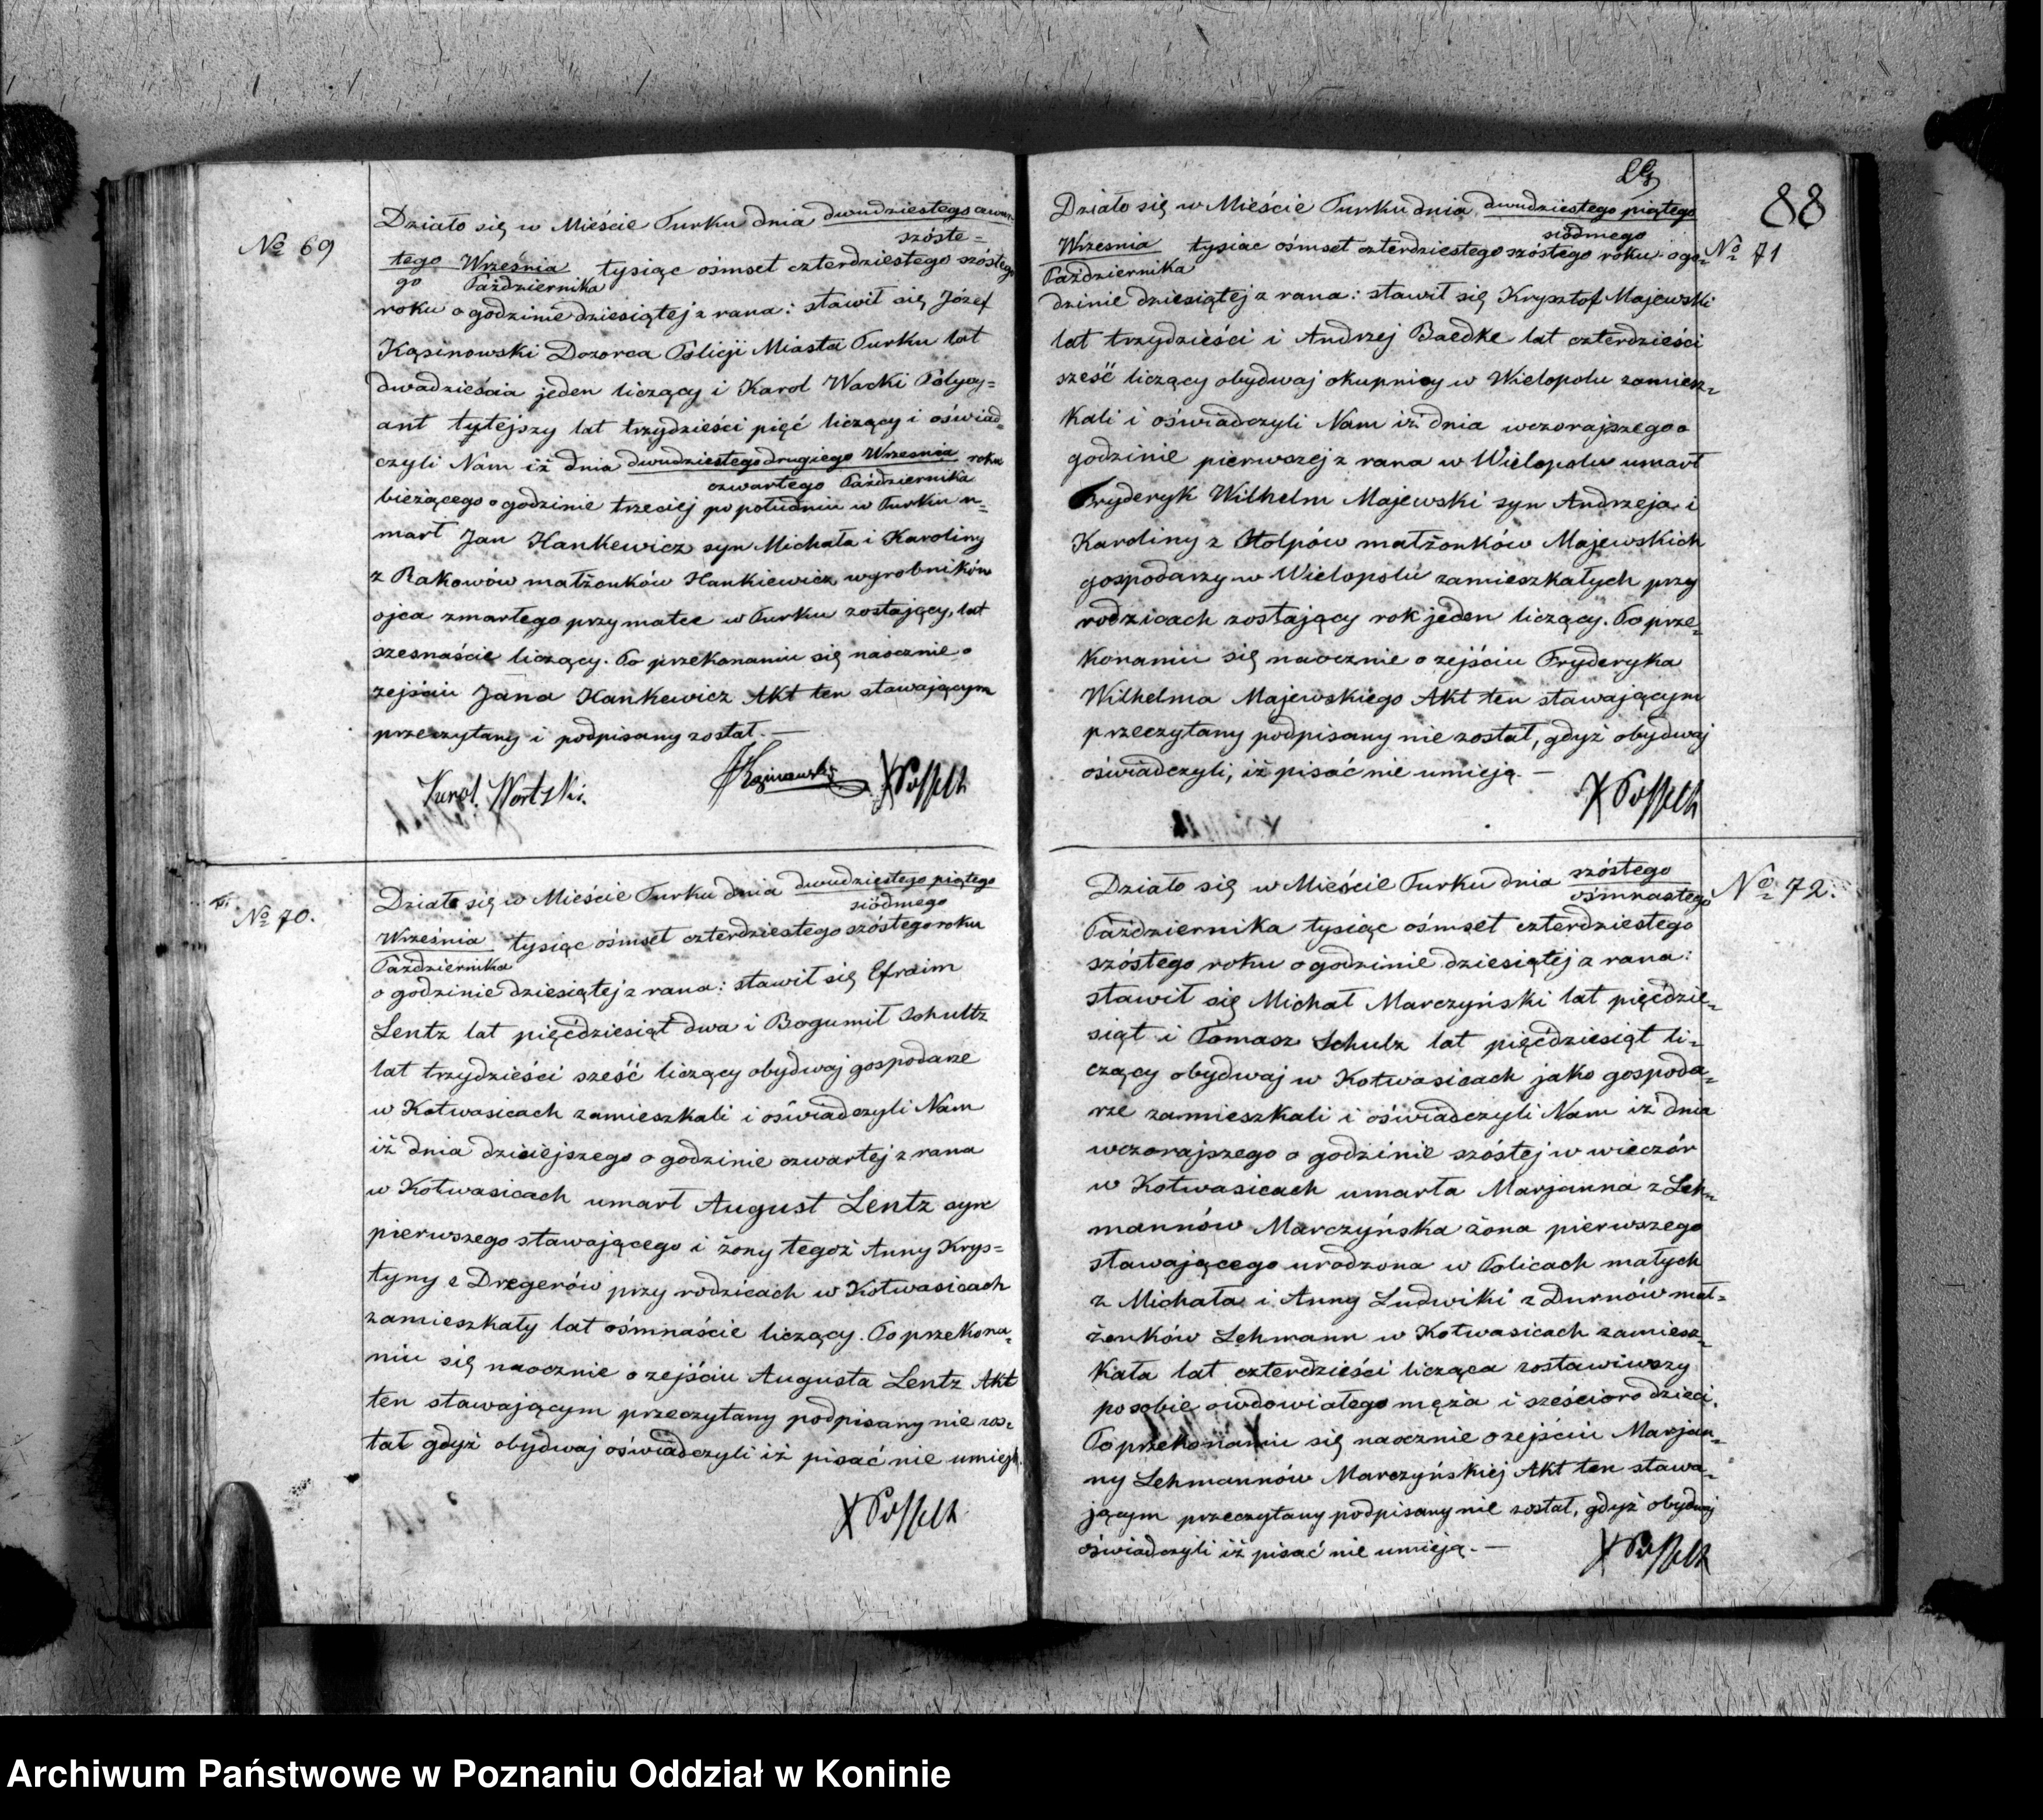 No 69
Działo się w Mieście Turku dnia dwudziestego czwar-
szóste-
tego Września tysiąc ośmset czterdziestego szóstego
go Października
roku o godzinie dziesiątej z rana: stawił się Józef
Kąsinowski Dozorca Policji Miasta Turku lat
dwadzieścia jeden liczący i Karol Wacki Policy-
ant tytejszy lat trzydzieści pięć liczący i oświad-
czyli Nam iż dnia dwudziestego drugiego Września roku
czwartego Października
bieżącego o godzinie trzeciej po południu w Turku u-
marł Jan Hankewicz syn Michała i Karoliny
z Rakowów małżonków Hankiewicz wyrobników
ojca zmarłego przy matce w Turku zostający, lat
szesnaście liczący. Po przekonaniu się naocznie o
zejściu Jana Hankewicz Akt ten stawającym
przeczytany i podpisany został. —
Karol Wortzki. JKąsinowski XPosselt
No 70.
Działo się w Mieście Turku dnia dwudziestego piątego
siódmego
Września tysiąc ośmset czterdziestego szóstego roku
Października
o godzinie dziesiątej z rana: stawił się Efraim
Lentz lat pięćdziesiąt dwa i Bogumił Schultz
lat trzydzieści sześć liczący obydwaj gospodarze
w Kotwasicach zamieszkali i oświadczyli Nam
iż dnia dzisiejszego o godzinie czwartej z rana
w Kotwasicach umarł August Lentz syn
pierwszego stawającego i żony tegoż Anny Krys-
tyny z Dregerów przy rodzicach w Kotwasicach
zamieszkały lat ośmnaście liczący. Po przekona-
niu się naocznie o zejściu Augusta Lentz Akt
ten stawającym przeczytany podpisany nie zos-
tał gdyż obydwaj oświadczyli iż pisać nie umieją.
XPosselt
88
Działo się w Mieście Turku dnia dwudziestego piątego
siódmego
Września tysiąc ośmset czterdziestego szóstego roku o go-
Października
No 71
dzinie dziesiątej z rana: stawił się Krysztof Majewski
lat trzydzieści i Andrzej Baedke lat czterdzieści
sześć liczący obydwaj okupnicy w Wielopolu zamiesz-
kali i oświadczyli Nam iż dnia wczorajszego o
godzinie pierwszej z rana w Wielopolu umarł
Fryderyk Wilhelm Majewski syn Andrzeja i
Karoliny z Stolpów małżonków Majewskich
gospodarzy w Wielopolu zamieszkałych przy
rodzicach zostający rok jeden liczący. Po prze-
konaniu się naocznie o zejściu Fryderyka
Wilhelma Majewskiego Akt ten stawającym
przeczytany podpisany nie został, gdyż obydwaj
oświadczyli, iż pisać nie umieją. —
XPosselt
Działo się w Mieście Turku dnia szóstego
ośmnastego
No 72.
Października tysiąc ośmset czterdziestego
szóstego roku o godzinie dziesiątej z rana:
stawił się Michał Marczyński lat pięćdzie-
siąt i Tomasz Schulz lat pięćdziesiąt li-
czący obydwaj w Kotwasicach jako gospoda-
rze zamieszkali i oświadczyli Nam iż dnia
wczorajszego o godzinie szóstej w wieczór
w Kotwasicach umarła Marjanna z Leh-
mannów Marczyńska żona pierwszego
stawającego urodzona w Policach małych
z Michała i Anny Ludwiki z Durnów mał-
żonków Lehmann w Kotwasicach zamiesz-
kała lat czterdzieści licząca zostawiwszy
po sobie owdowiałego męża i sześcioro dzieci.
Po przekonaniu się naocznie o zejściu Marjan-
ny Lehmannów Marczyńskiej Akt ten stawa-
jącym przeczytany podpisany nie został, gdyż obydwaj
oświadczyli iż pisać nie umieją. —
XPosselt
Archiwum Państwowe w Poznaniu Oddział w Koninie